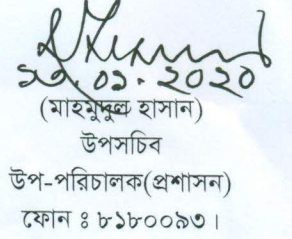 ২৯.০১.২০২০
(মাহমুদুল হাসান)
উপসচিব
উপ-পরিচালক(প্রশাসন)
ফোন ঃ ৮১৮০০৯৩।